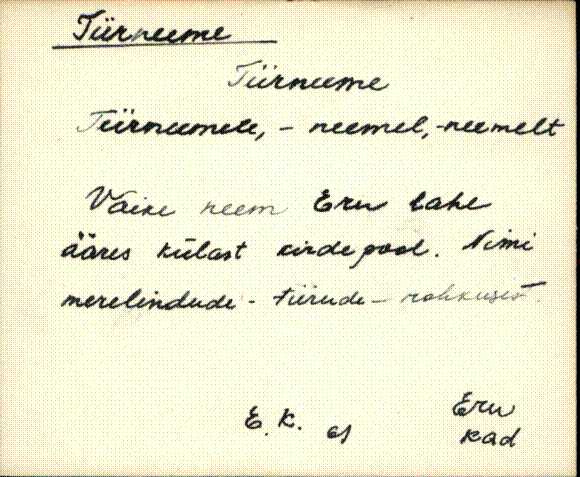 Tiirneeme
Tiirneeme
Tiirneemele, - neemel, -neemelt
Väike neem Eru lahe
ääres külast kirde pool. Nimi
merelindude - tiirude - rohkusest.
E. K. 61
Eru
Kad